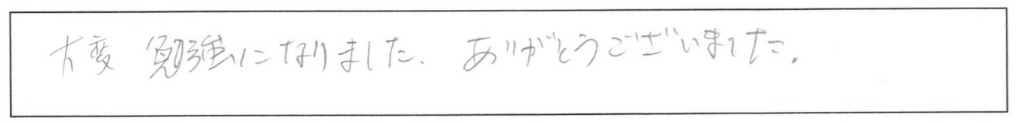 大変 勉強になりました. ありがとうございました.